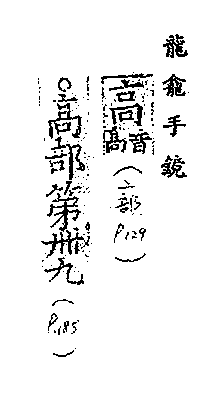 龍龕手鏡
高音高(亠部 P.129)
○高部第卌九(P.185)